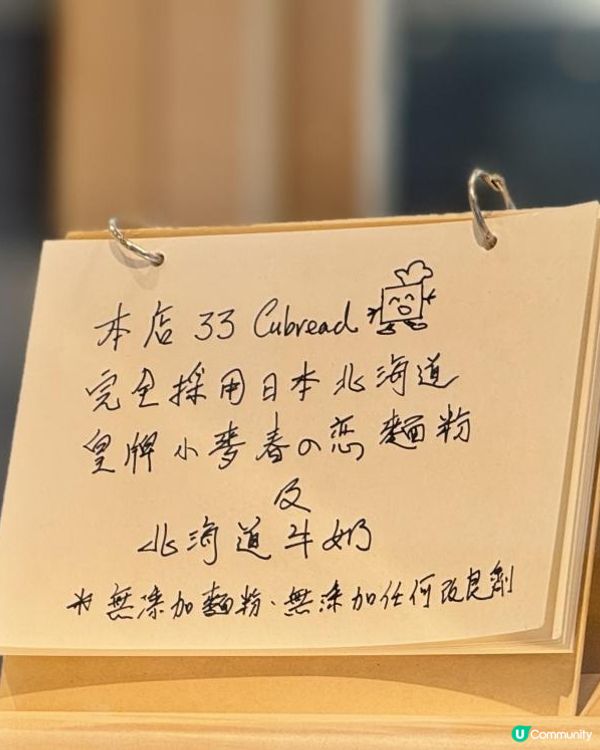 本店 33 Cubread
完全採用日本北海道
皇牌小麥春の恋麵粉
及
北海道牛奶
*無添加麵粉、無添加任何改良劑
U Community